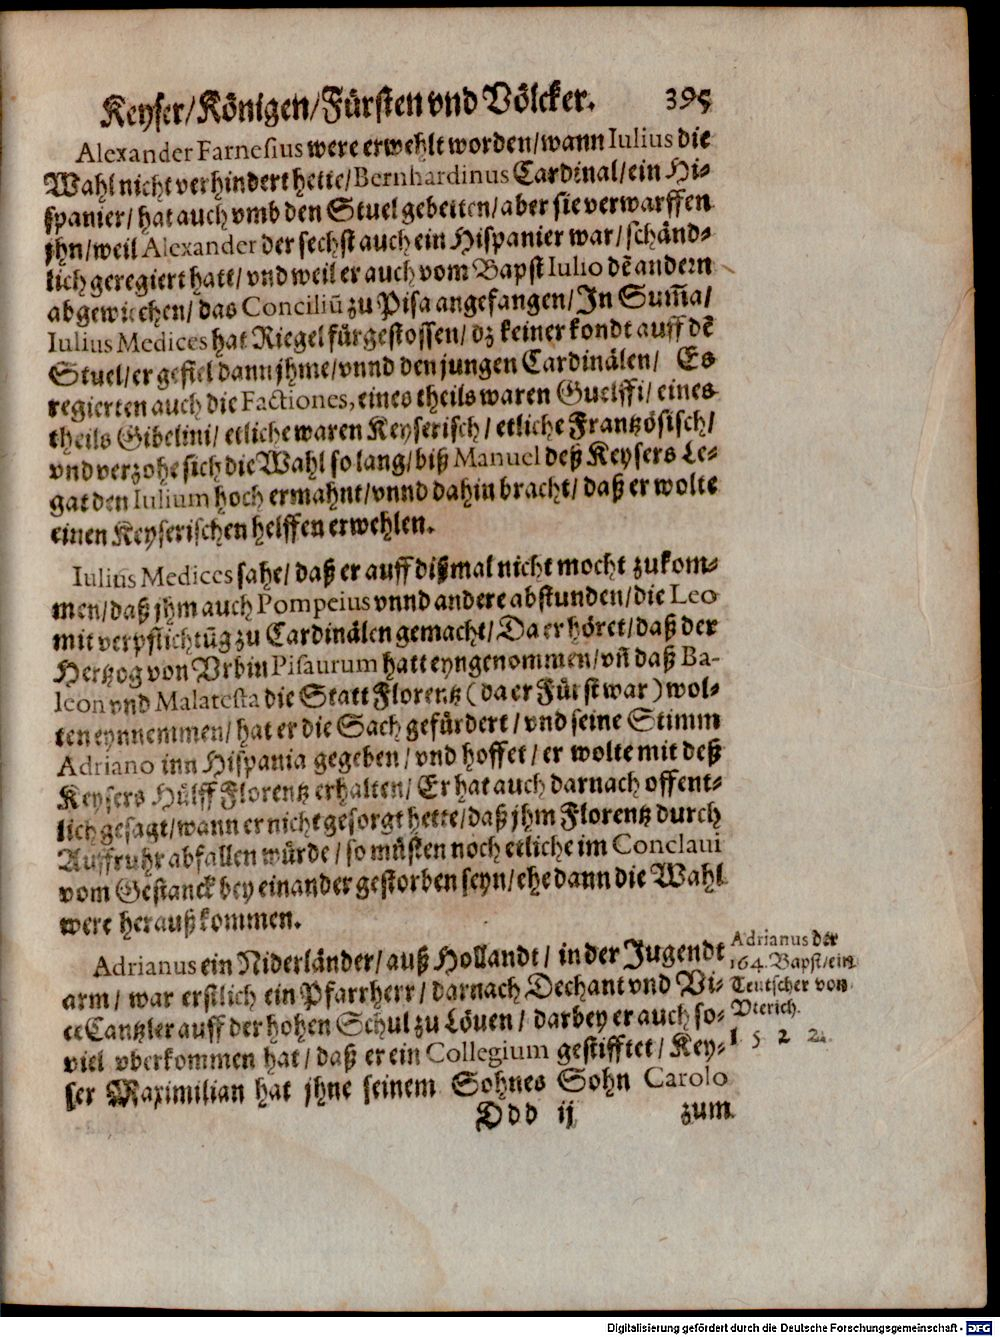 Keyser/Königen/Fürsten vnd Völcker. 395
Alexander Farnesius were erwehlt worden/wann Iulius die
Wahl nicht verhindert hette/Bernhardinus Cardinal/ein Hi-
spanier/hat auch vmb den Stuel gebetten/aber sie verwarffen
jhn/weil Alexander der sechst auch ein Hispanier war/schänd-
lich geregiert hatt/vnd weil er auch vom Bapst Iulio dē andern
abgewichen/das Conciliū zu Pisa angefangen/In Sum̄a/
Iulius Medices hat Riegel fürgestossen/dz keiner kondt auff dē
Stuel/er gefiel dann jhme/vnnd den jungen Cardinälen/ Es
regierten auch die Factiones, eines theils waren Guelffi/eines
theils Gibelini/etliche waren Keyserisch/etliche Frantzösisch/
vnd verzohe sich die Wahl so lang/biß Manuel deß Keysers Le-
gat den Iulium hoch ermahnt/vnnd dahin bracht/daß er wolte
einen Keyserischen helffen erwehlen.
Iulius Medices sahe/daß er auff dißmal nicht mocht zukom-
men/daß jhm auch Pompeius vnnd andere abstunden/die Leo
mit verpflichtūg zu Cardinälen gemacht/Da er höret/daß der
Hertzog von Vrbin Pisaurum hatt eyngenommen/vn̄ daß Ba-
leon vnd Malatesta die Statt Florentz (da er Fürst war) wol-
ten eynnemmen/hat er die Sach gefürdert/vnd seine Stimm
Adriano inn Hispania gegeben/vnd hoffet/er wolte mit deß
Keysers Hülff Florentz erhalten/Er hat auch darnach offent-
lich gesagt/wann er nicht gesorgt hette/daß jhm Florentz durch
Auffruhr abfallen würde/so müsten noch etliche im Conclaui
vom Gestanck bey einander gestorben seyn/ehe dann die Wahl
were heraußkommen.
Adrianus ein Niderländer/auß Hollandt/in der Jugendt
arm/war erstlich ein Pfarrherr/darnach Dechant vnd Vi-
ceCantzler auff der hohen Schul zu Löuen/darbey er auch so-
viel vberkommen hat/daß er ein Collegium gestifftet/Key-
ser Maximilian hat jhne seinem Sohnes Sohn Carolo
Ddd ij zum
Adrianus der
164. Bapst/ein
Teutscher von
Vterich.
1522.
Digitalisierung gefördert durch die Deutsche Forschungsgemeinschaft - DFG